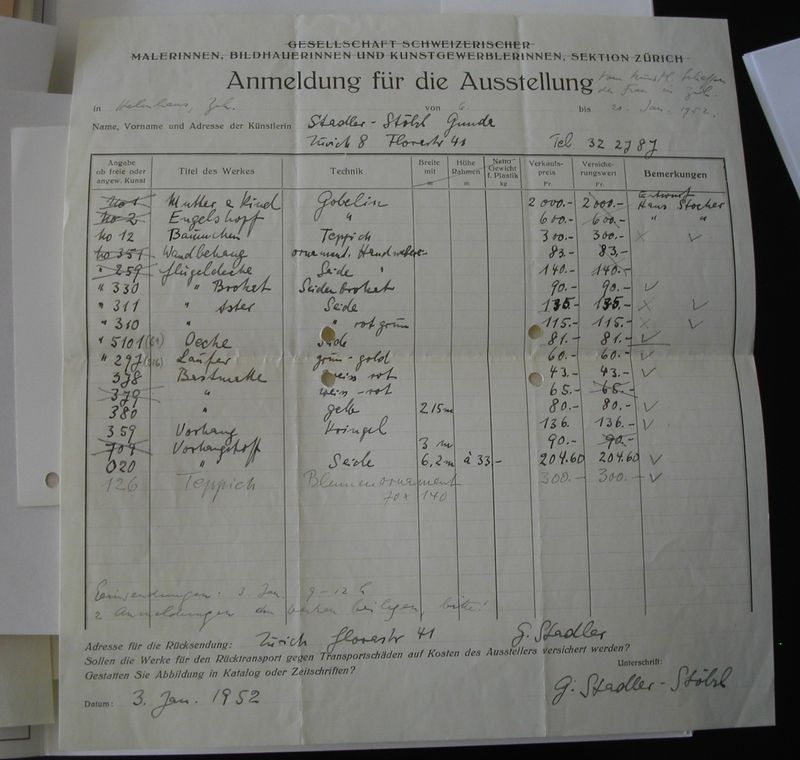 GESELLSCHAFT SCHWEIZERISCHER
MALERINNEN, BILDHAUERINNEN UND KUNSTGEWERBLERINNEN, SEKTION ZÜRICH
Anmeldung für die Ausstellung
in Helmhaus, Zch. von 6. bis 20. Jan. 1952.
Name, Vorname und Adresse der Künstlerin Stadler-Stölzl Gunda
Zürich 8 Florastr 41 Tel 32 27 87
Angabe ob freie oder angew. Kunst Titel des Werkes Technik Breite mit m Höhe Rahmen) m Netto-Gewicht f. Plastik kg Verkaufspreis Fr. Versicherungswert Fr. Bemerkungen
No 1 Mutter & Kind Gobelin 2000.- 2000.- Entwurf Hans Stocker
No 2 Engelskopf " 600.- 600.- " "
No 12 Bäumchen Teppich 300.- 300.- x v
No 351 Wandbehang ornament. Handweberei 83.- 83.-
" 259 Flügeldecke Seide " 140.- 140.-
" 330 " Brokat Seidenbrokat 90.- 90.- v
" 311 " Aster Seide 135.- 135.- x v
" 310 " " rot grün 115.- 115.- x v
" 5101 (61) Decke Seide 81.- 81.- v
" 297 (316) Läufer grün-gold 60.- 60.- v
378 Bastmatte weiss rot 43.- 43.- v
379 " weiss-rot 65.- 65.-
380 " gelb 2.15m 80.- 80.- v
359 Vorhang Kringel 136. 136.- v
704 Vorhangstoff 3 m 90.- 90.-
020 " Seide 6,2m à 33.- 204.60 204.60 v
126 Teppich Blumenornament 300.- 300.- v
70 x 140
Einsendungen: 3. Jan. 9-12 h
2 Anmeldungen den Werken beilegen, bitte!
Adresse für die Rücksendung: Zürich Florastr 41 G. Stadler
Sollen die Werke für den Rücktransport gegen Transportschäden auf Kosten des Ausstellers versichert werden?
Gestatten Sie Abbildung in Katalog oder Zeitschriften? Unterschrift:
Datum: 3. Jan. 1952 G. Stadler-Stölzl